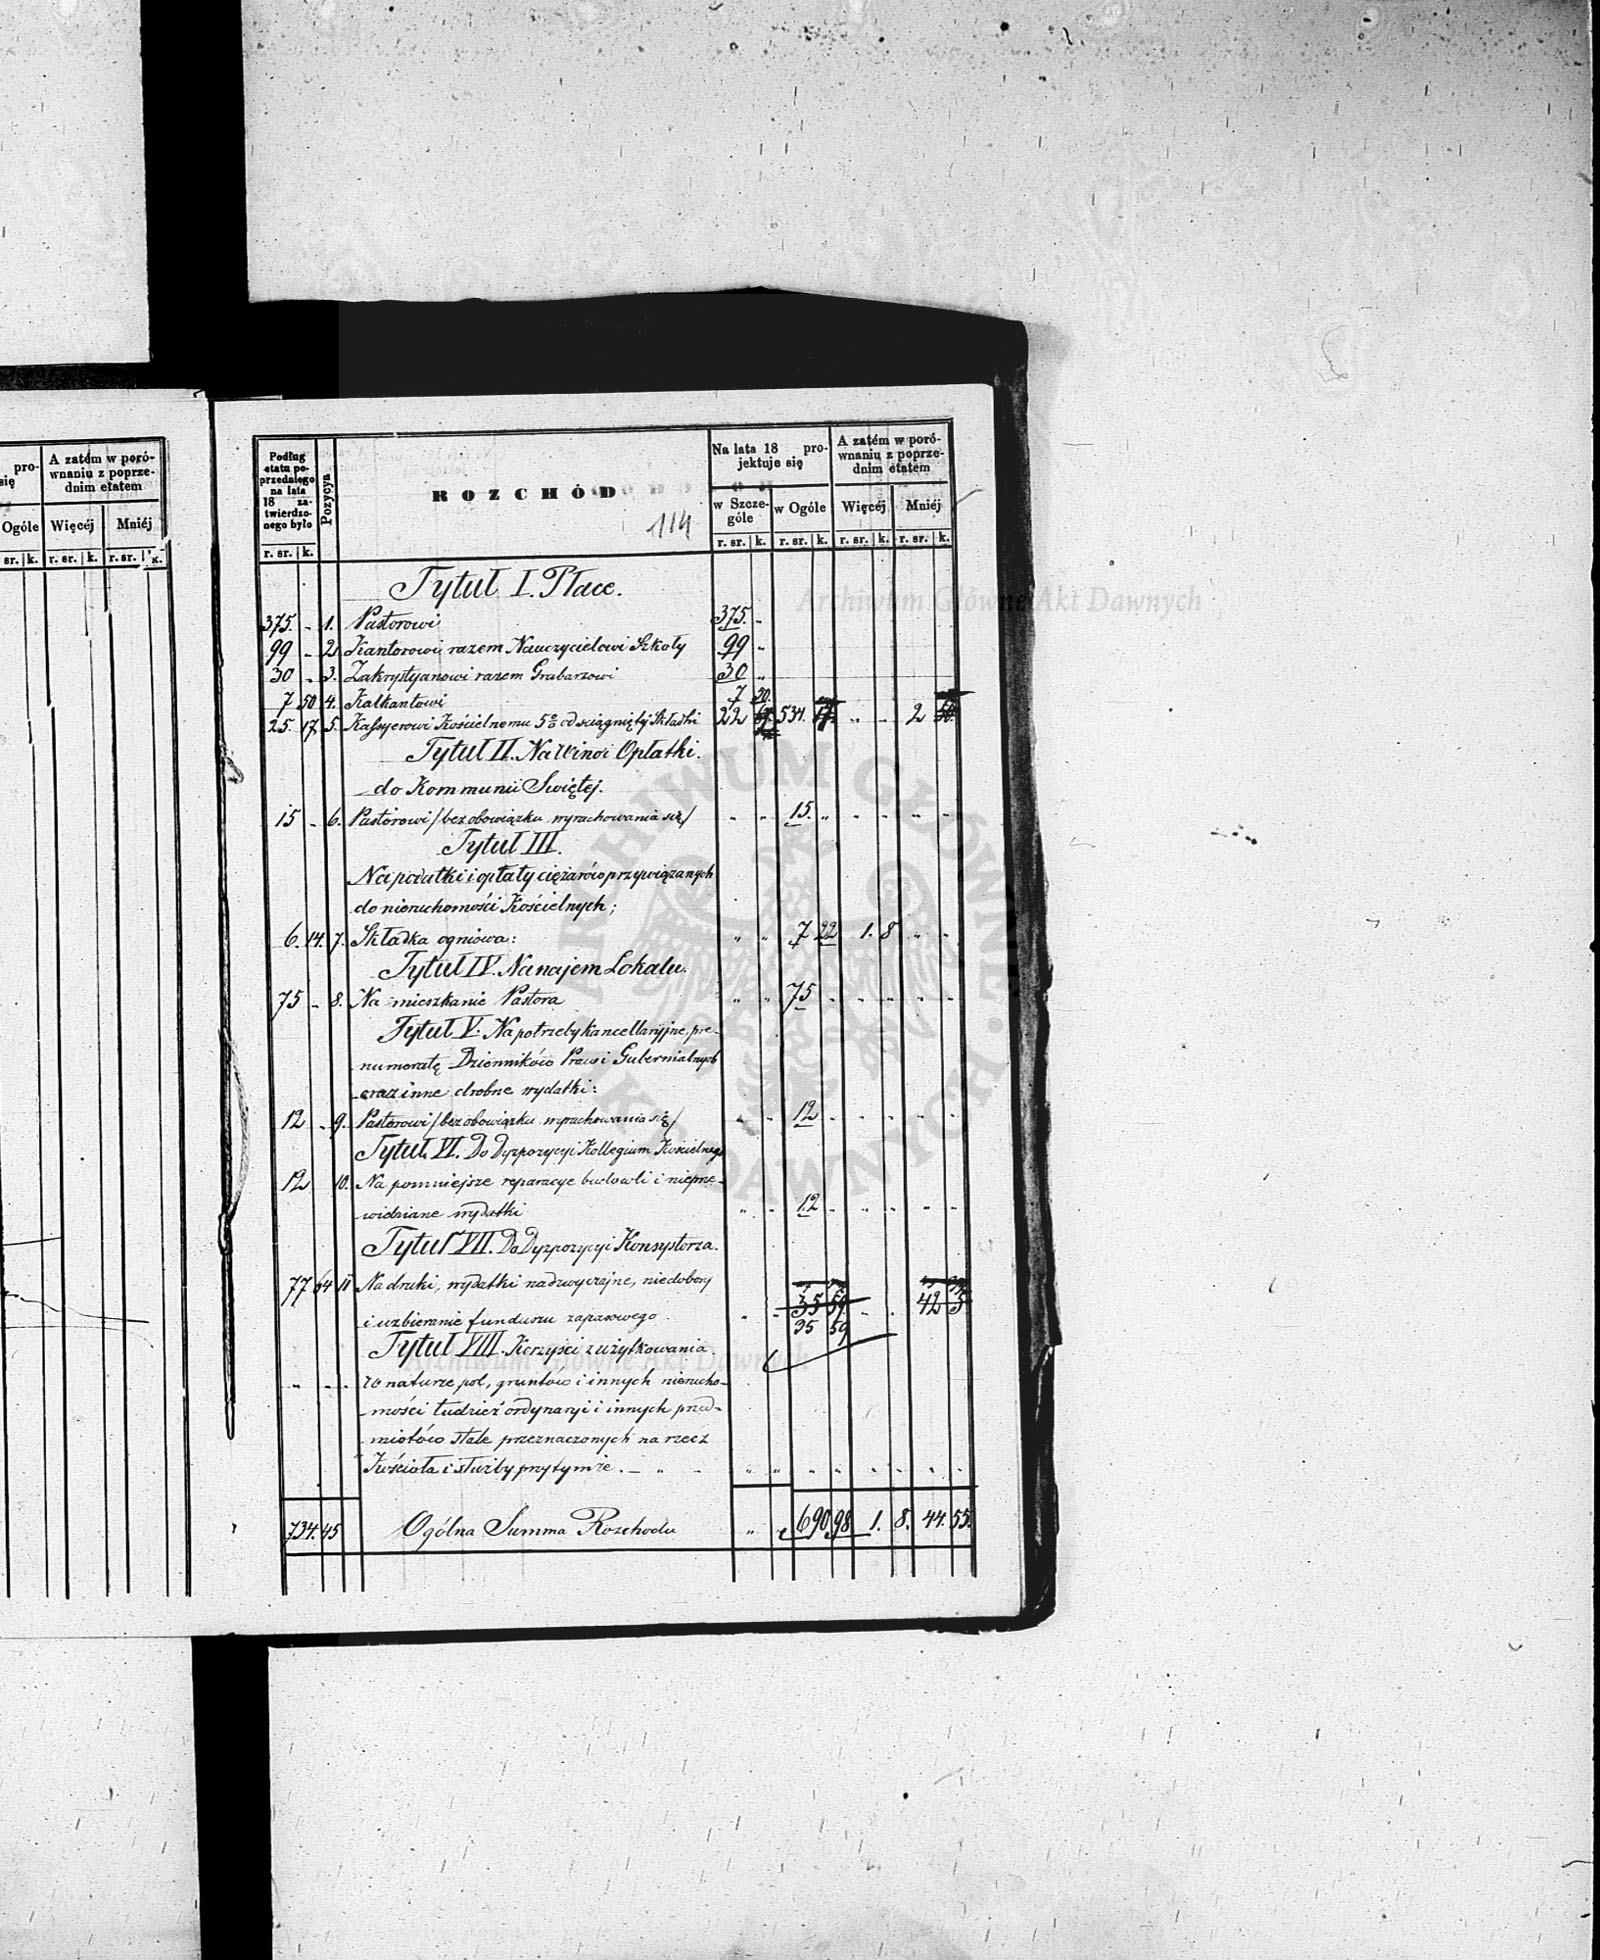 pro-
się
A zatém w poró-
wnaniu z poprze-
dnim etatem
Ogóle Więcéj Mniéj
sr. k. r. sr. k. r. sr. k.
Podług
etatu po-
przedniego
na lata
18 za-
twierdzo-
nego było
Pozycya
ROZCHÓD
114
Na lata 18 pro-
jektuje się
A zatém w poró-
wnaniu z poprze-
dnim etatem
w Szcze-
góle
w Ogóle Więcéj Mniéj
r. sr. k. r. sr. k. r. sr. k. r. sr. k. r. sr. k.
Tytuł I. Płace.
375. - 1. Pastorowi 375. "
99 - 2. Kantorowi razem Nauczycielowi Szkoły 99 "
30 - 3. Zakrystyanowi razem Grabarzowi 30 "
7 50 4. Kalkantowi 7 50.
25. 17. 5. Kassyerowi Kościelnemu 5% od ściągnięty Składki 22 534. " - 2
Tytuł II. Na Wino i Opłatki
do Kommunii Swiętej.
15 - 6. Pastorowi /bez obowiązku wyrachowania się/ " " 15. " " " " "
Tytuł III.
Na podatki i opłaty ciężarów przywiązanych
do nieruchomości Kościelnych;
6. 14. 7. Składka ogniowa: " " 7 22 1. 8 " "
Tytuł IV. Na najem Lokalu.
75 - 8. Na mieszkanie Pastora " " 75 - - - - -
Tytuł V. Na potrzeby kancellaryjne, pre-
numeratę Dzienników Praw i Gubernialnych
oraz inne drobne wydatki:
12 - 9. Pastorowi /bez obowiązku wyrachowania się/ " " 12 - - - - -
Tytuł VI. Do Dyspozycyi Kollegium Kościelnego
12 10. Na pomniejsze reparacye budowli i nieprze-
widziane wydatki " " 12 - - - - -
Tytuł VII. Do Dyspozycyi Konsystorza.
77 64 11 Na druki, wydatki nadzwyczajne, niedobory 35 59 42 5
i uzbieranie funduszu zapasowego. " " 35 59
Tytuł VIII. Korzyści z użytkowania
" - - w naturze pol, gruntów i innych nierucho-
mości tudzież ordynaryi i innych przed-
miotów stale przeznaczonych na rzecz
Kościoła i służby przy tymże. - " - " " " " " " " "
734. 45 Ogólna Summa Rozchodu " " 690 98 1. 8. 44. 55.
Archiwum Główne Akt Dawnych
ARCHIWUM GŁÓWNE AKT DAWNYCH
Archiwum Główne Akt Dawnych